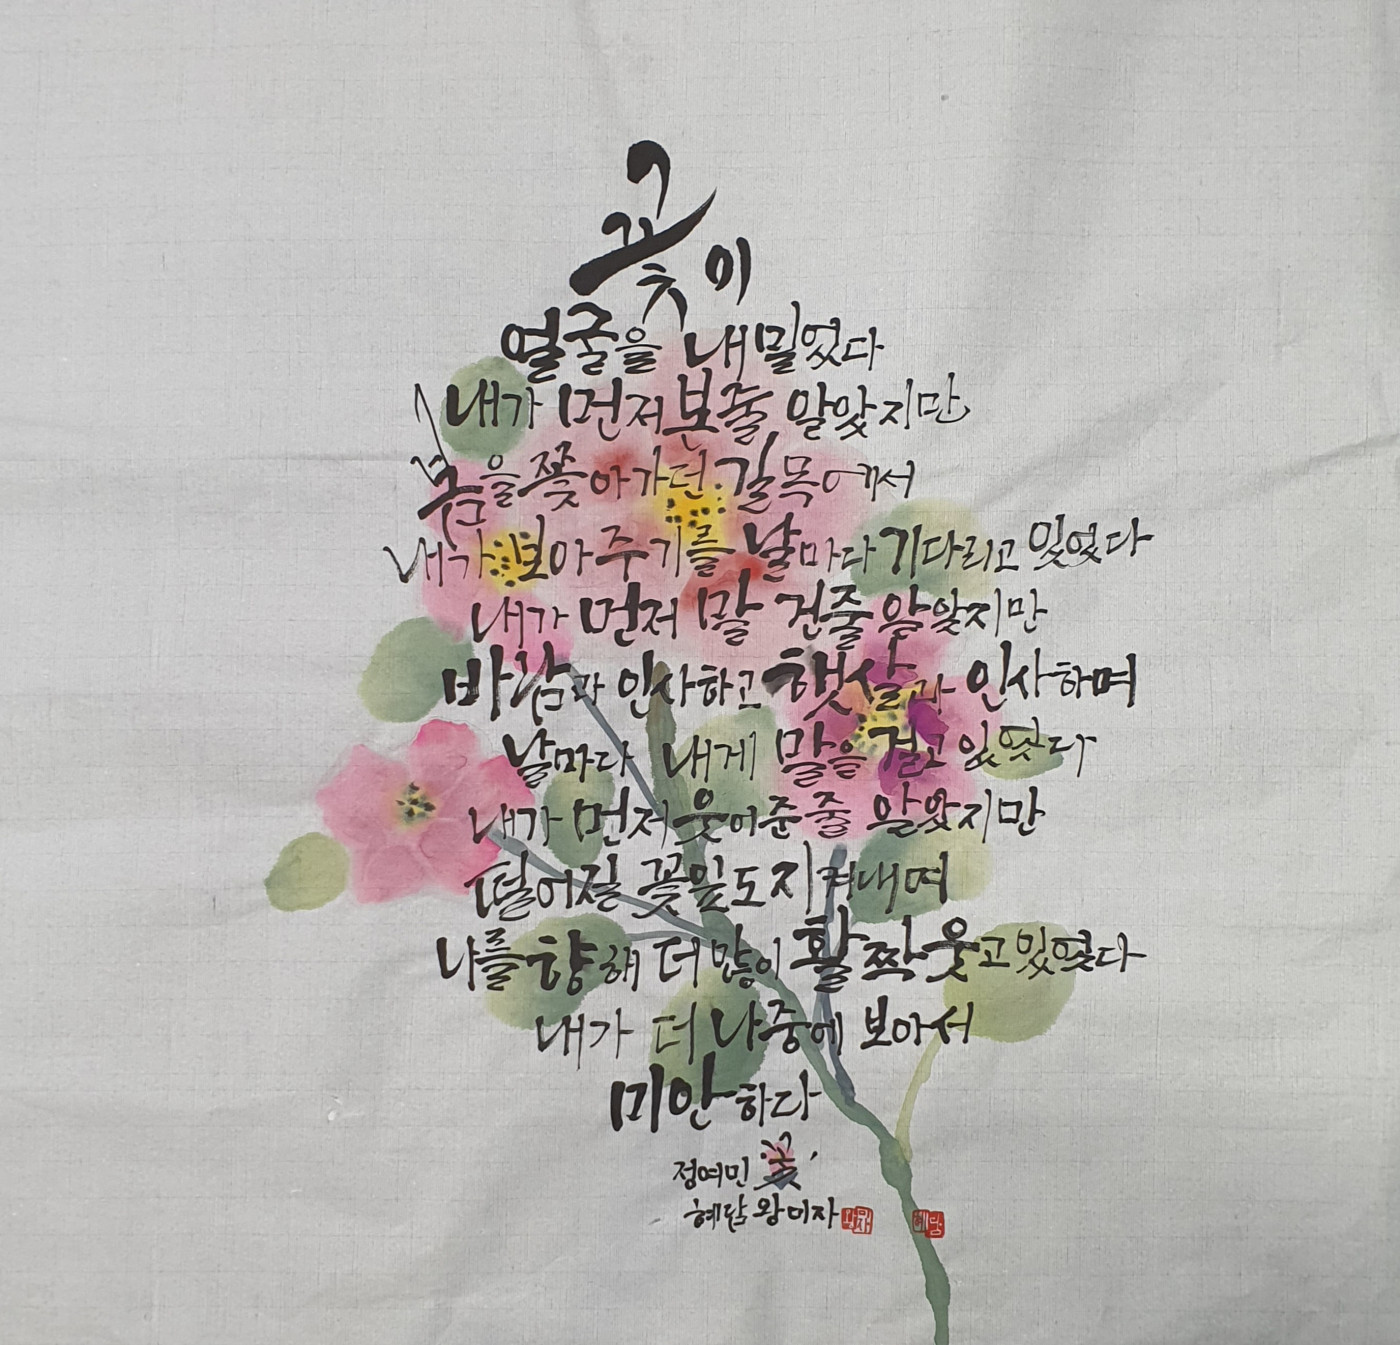 꽃이
얼굴을 내밀었다
내가 먼저 본줄 알았지만
봄을 쫓아가던 길목에서
내가 보아 주기를 날마다 기다리고 있었다
내가 먼저 말 건줄 알았지만
바람과 인사하고 햇살과 인사하며
날마다 내게 말을 걸고 있었다
내가 먼저 웃어준줄 알았지만
떨어질 꽃잎도 지켜내며
나를 향해 더 많이 활짝 웃고 있었다
내가 더 나중에 보아서
미안하다
정여민 꽃'
혜담 왕미자 왕미자 혜담